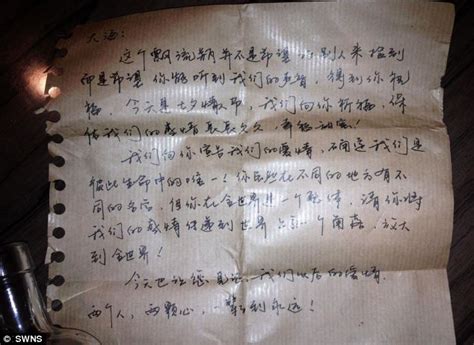 大海:
这个飘流瓶并不是希望 别人来捡到
而是希望你能听到我们的声音, 得到你祝
福, 今天是七夕情人节, 我们向你祈福, 保
佑我们的感情长长久久, 甜蜜!
我们向你宣告我们的爱情, 我们是
彼此生命中的唯一! 你虽然在不同的地方有不
同的名字, 但你在全世界 一个 , 请你将
我们的感情传递到世界 一个角落, 放大
到全世界!
今天 让您见证 我们 的爱情.
两个人, 两颗心, 一 到永远!
© SWNS